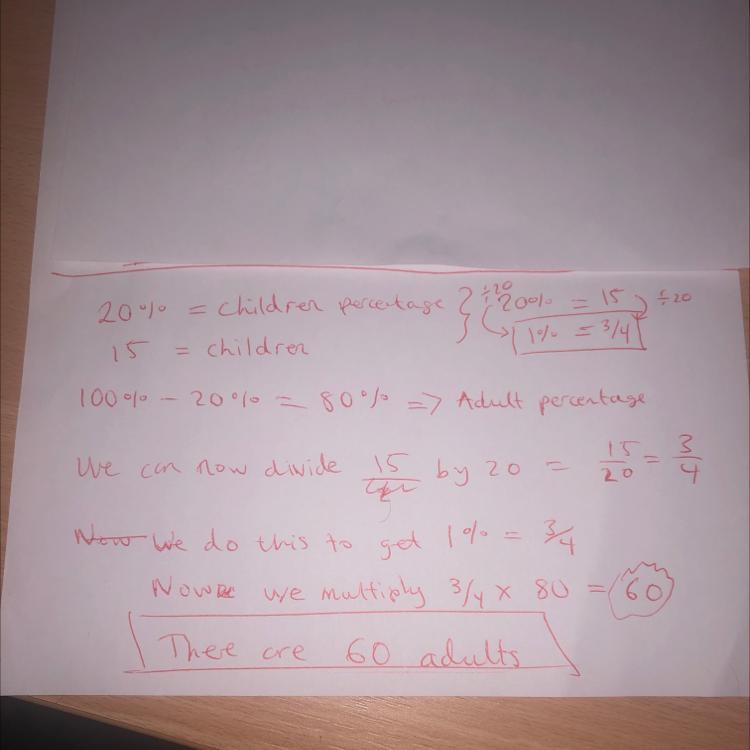 20% = children percentage } ÷20 20% = 15 ÷20
15 = children 1% = 3/4
100% - 20% = 80% => Adult percentage
We can now divide 15 by 20 = 15/20 = 3/4
Now We do this to get 1% = 3/4
Now we multiply 3/4 x 80 = 60
There are 60 adults